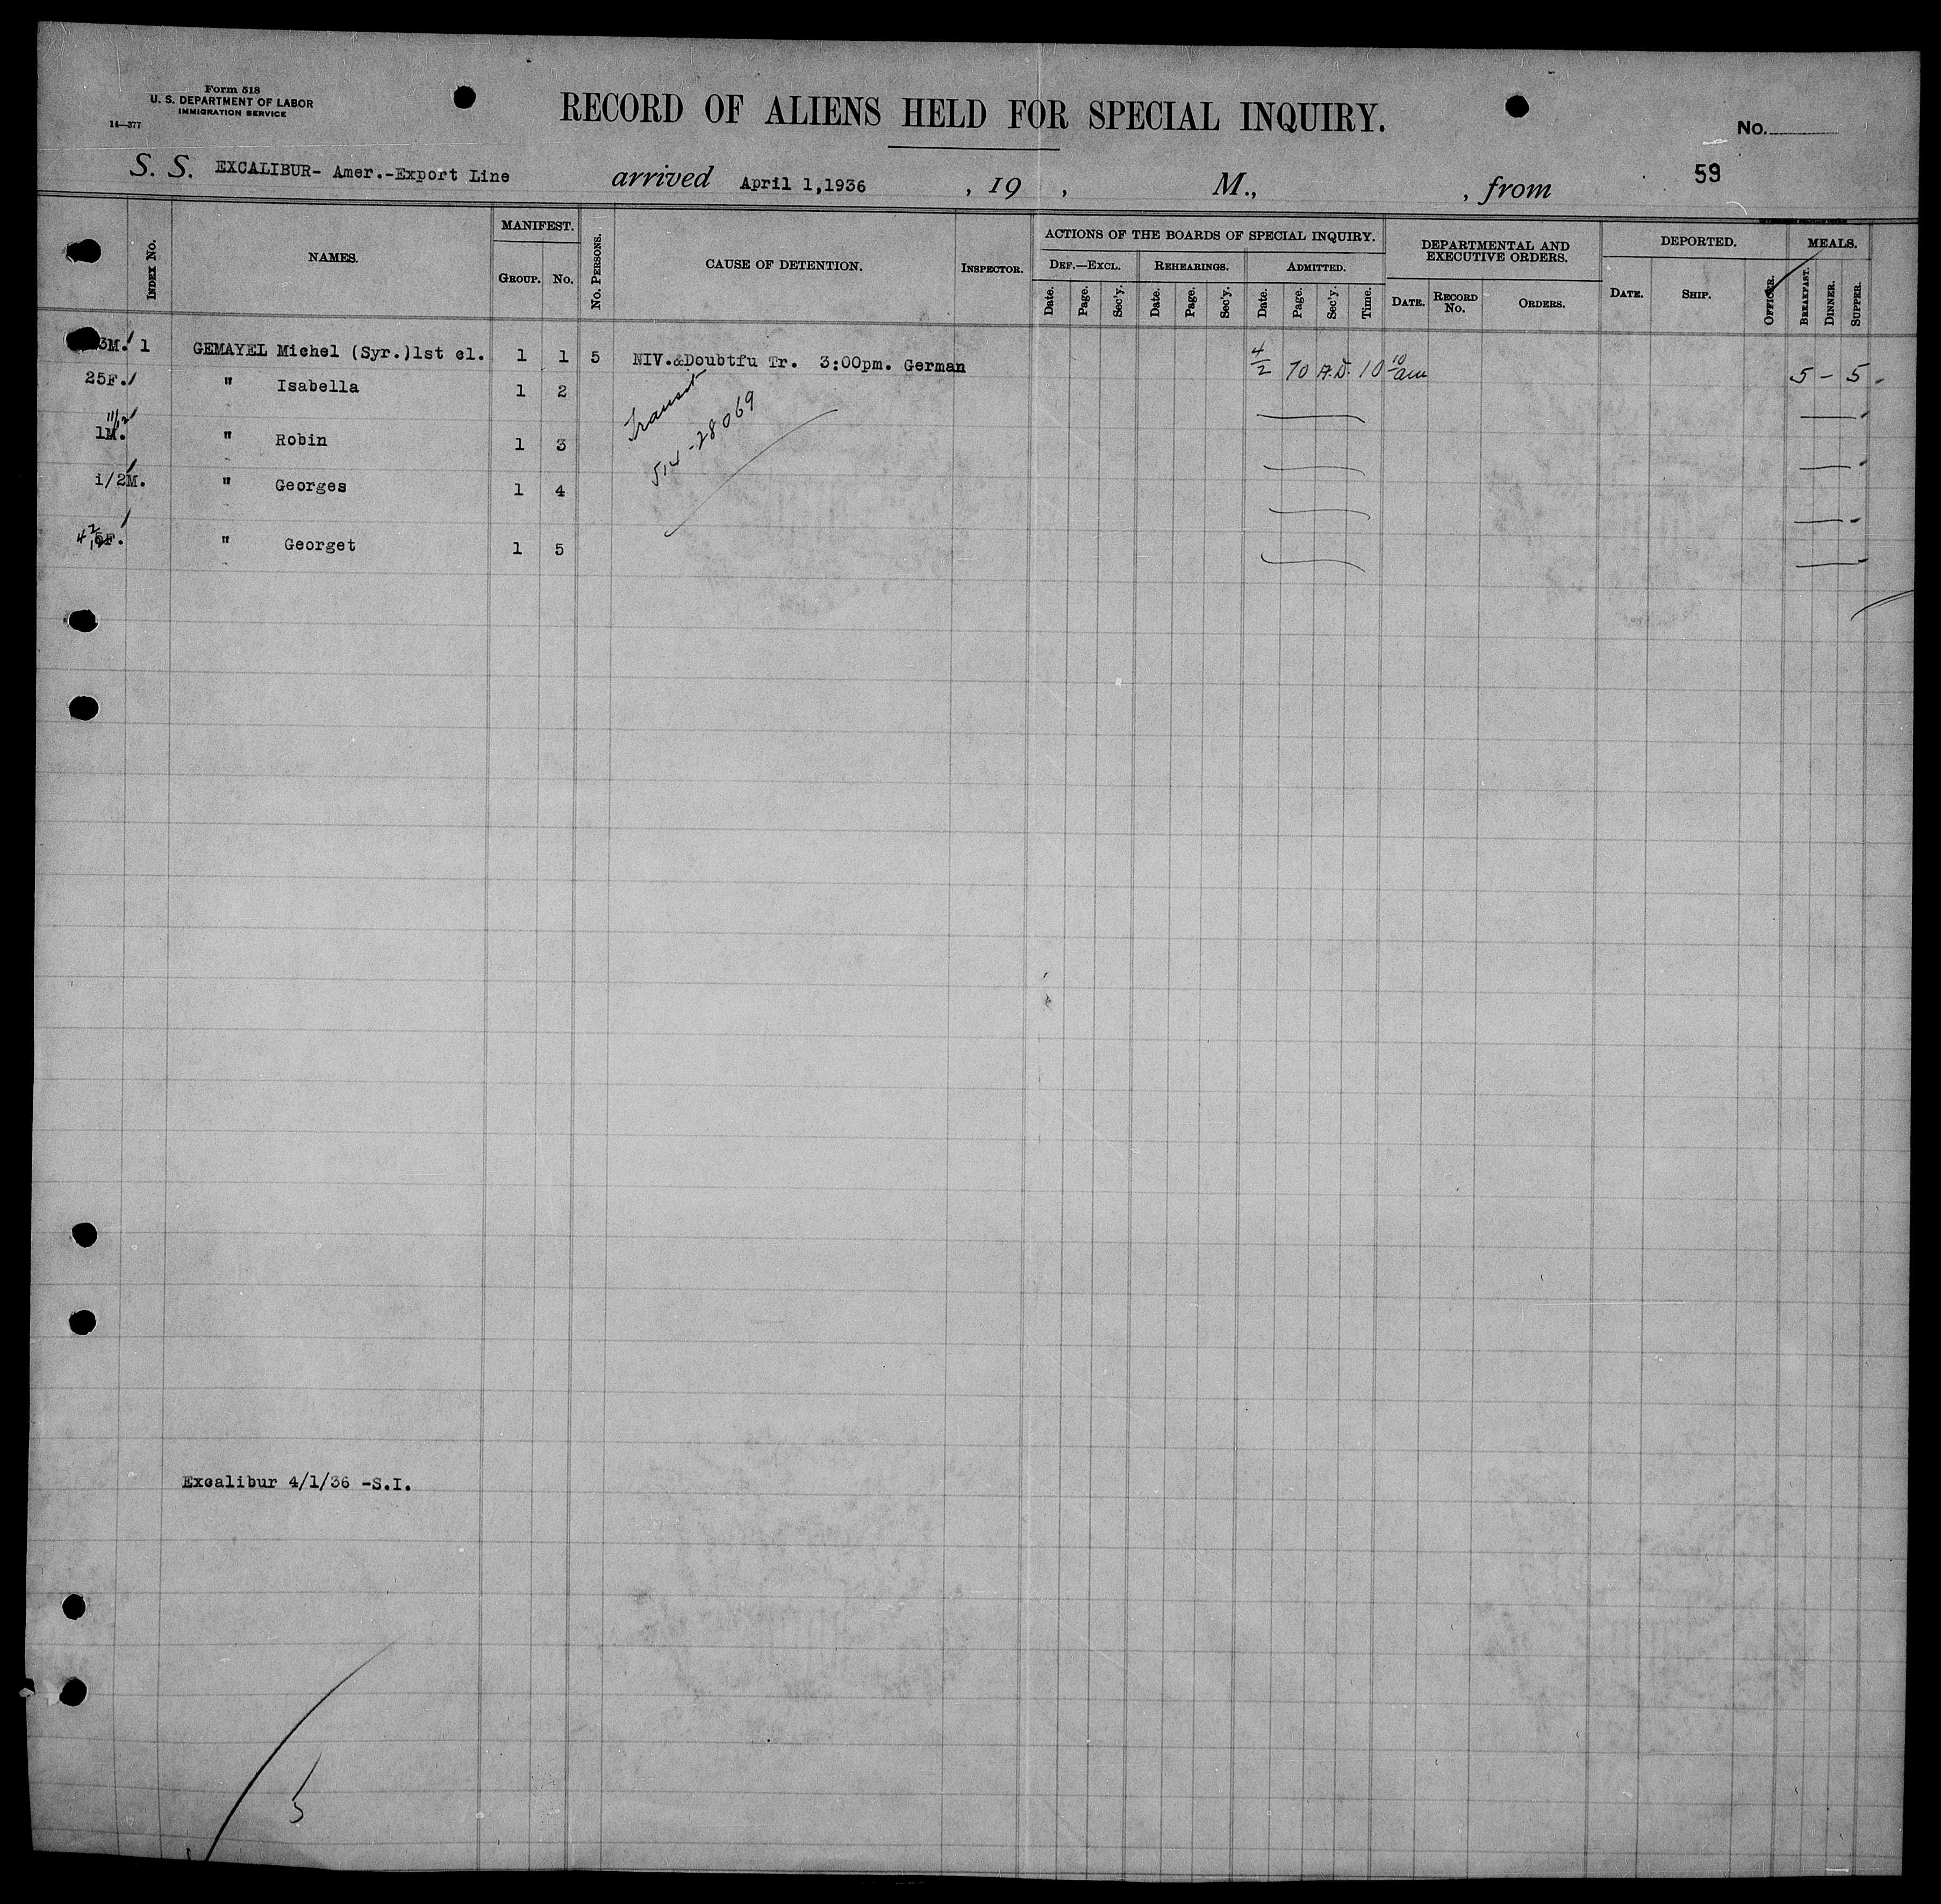 Form 518
U. S. DEPARTMENT OF LABOR
IMMIGRATION SERVICE
14—377
RECORD OF ALIENS HELD FOR SPECIAL INQUIRY.
No.
S. S. EXCALIBUR- Amer.-Export Line arrived April 1,1936 , 19 , M., , from 59
INDEX NO.
NAMES.
MANIFEST.
GROUP. NO.
NO. PERSONS.
CAUSE OF DETENTION.
INSPECTOR.
ACTIONS OF THE BOARDS OF SPECIAL INQUIRY.
DEF.—EXCL. REHEARINGS. ADMITTED.
Date. Page. Sec'y. Date. Page. Sec'y. Date. Page. Sec'y. Time.
DEPARTMENTAL AND
EXECUTIVE ORDERS.
DATE. RECORD NO. ORDERS.
DEPORTED.
DATE. SHIP. OFFICER.
MEALS.
BREAKFAST. DINNER. SUPPER.
3M. 1 GEMAYEL Michel (Syr.)1st cl. 1 1 5 NIV.&Doubtfu Tr. 3:00pm. German 4/2 70 A.D. 10 10 am 5 - 5 -
25F. " Isabella 1 2
Transit
11/12
1M. " Robin 1 3
514-28069
1/2M. " Georges 1 4
F. " Georget 1 5
Excalibur 4/1/36 -S.I.
5